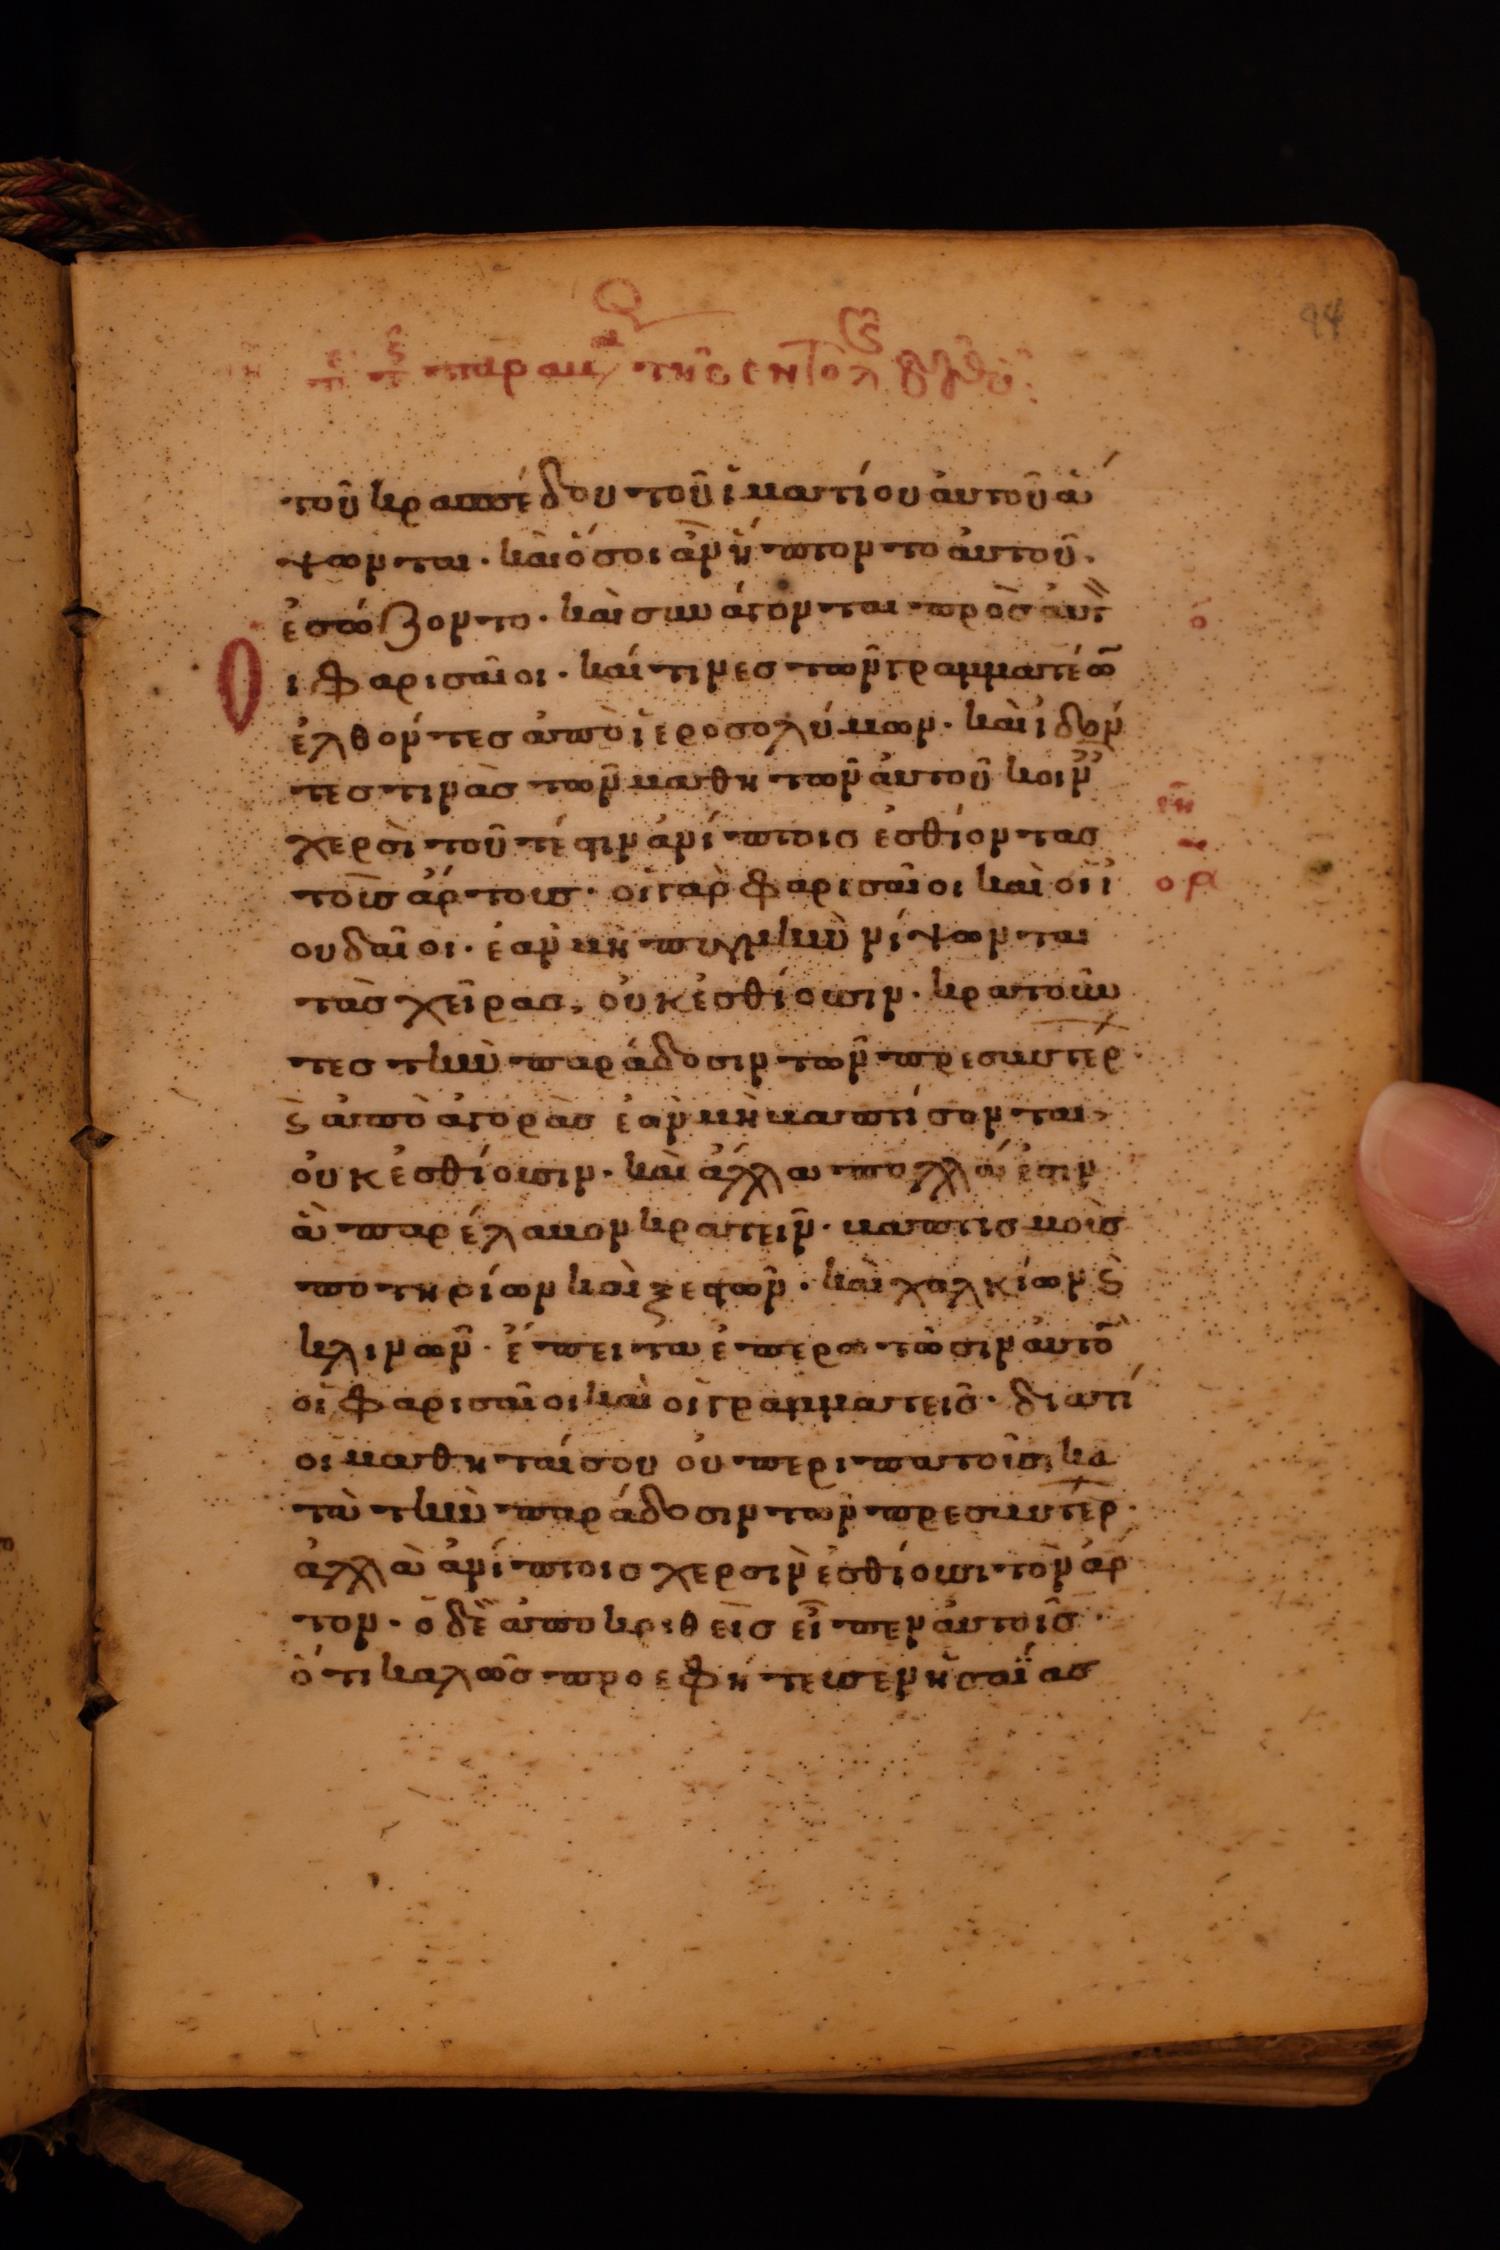 94
παραβ της εντολ
τοῦ κρασπέδου τοῦ ἱματίου αὐτοῦ ἅ
ψωνται· καὶ ὅσοι ἂν ἥπτοντο αὐτοῦ.
ἐσώζοντο· καὶ συνάγονται πρὸς αὐτ
Οἱ φαρισαῖοι· καί τινες τῶν γραμματέω
ἐλθόντες ἀπὸ ἱεροσολύμων· καὶ ἰδόν
τες τινὰς τῶν μαθητῶν αὐτοῦ κοιν
χερσὶ τοῦτέστιν ἀνίπτοις ἐσθίοντας
τοὺς ἄρτους· οἱ γὰρ φαρισαῖοι καὶ οἱ ἰ
ουδαῖοι· ἐὰν μὴ πυγμῇ νίψωνται
τὰς χεῖρας, οὐκ ἐσθίουσιν· κρατοῦν
τες τὴν παράδοσιν τῶν πρεσβυτέρ
ϛ ἀπὸ ἀγορὰς ἐὰν μὴ βαπτίσονται,
οὐκ ἐσθίουσιν· καὶ ἄλλα πολλά ἐσιν
ἃ παρέλαβον κρατεῖν· βαπτισμοὺς
ποτηρίων καὶ ξεστῶν· καὶ χαλκίων ϛ
κλινῶν· ἔπειτα ἐπερωτῶσιν αὐτὸ
οἱ φαρισαῖοι καὶ οἱ γραμματεῖς· διατί
οι μαθηταί σου οὐ περιπατοῦσι κα
τὰ τὴν παράδοσιν τῶν πρεσβυτέρ·
ἀλλὰ ἀνίπτοις χερσὶν ἐσθίουσι τὸν ἄρ
τον· ὁ δὲ ἀποκριθεὶς εἶπεν αὐτοῖς·
ὅτι καλῶς προεφήτευσεν ἠσαΐας